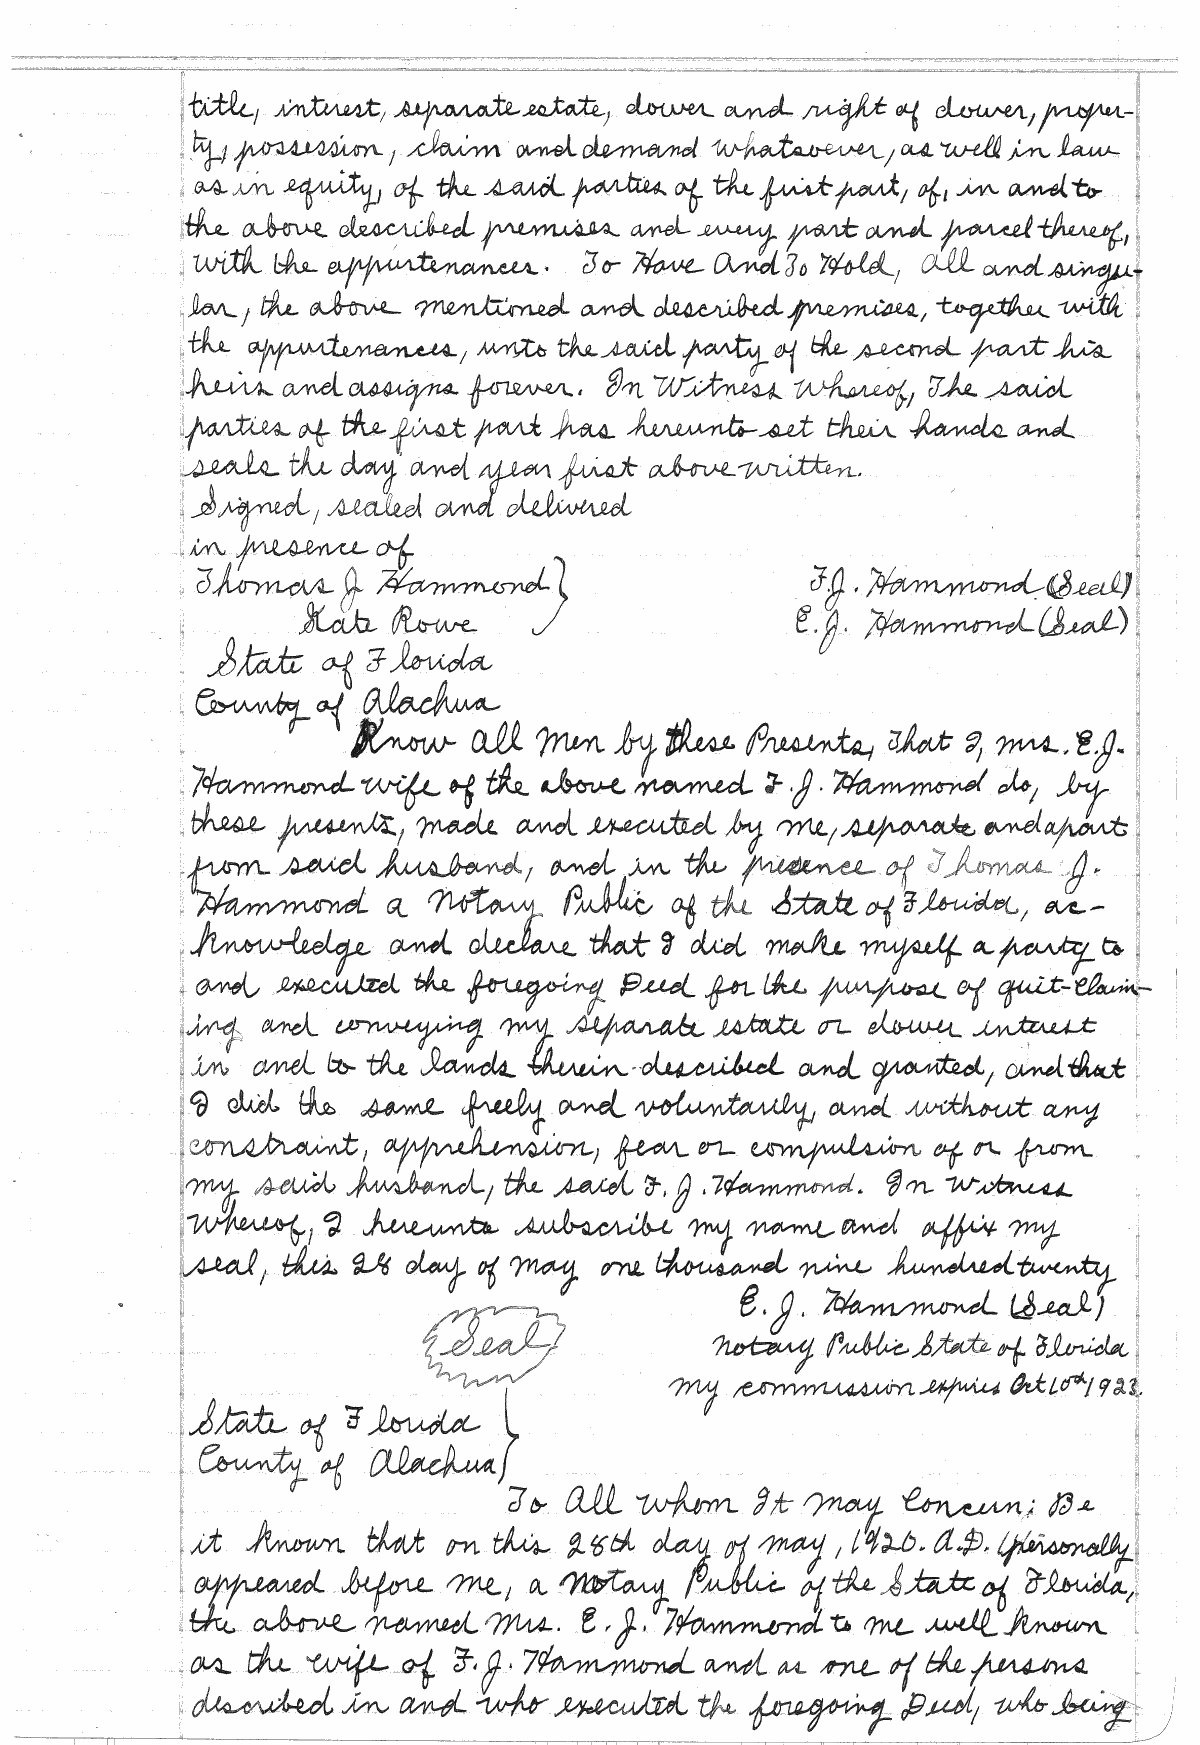 title, interest, separate estate, dower and right of dower, proper-
ty, possession, claim and demand whatsoever, as well in law
as in equity, of the said parties of the first part, of, in and to
the above described premises and every part and parcel thereof,
with the appurtenances. To Have And To Hold, All and singu-
lar, the above mentioned and described premises, together with
the appurtenances, unto the said party of the second part his
heirs and assigns forever. In Witness Whereof, The said
parties of the first part has hereunto set their hands and
seals the day and year first above written.
Signed, sealed and delivered
in presence of
Thomas J Hammond } F.J. Hammond (Seal)
Kate Rowe E.J. Hammond (Seal)
State of Florida
County of Alachua
Know All Men by These Presents, That I, Mrs. E.J.
Hammond wife of the above named F.J. Hammond do, by
these presents, made and executed by me, separate and apart
from said husband, and in the presence of Thomas J.
Hammond a Notary Public of the State of Florida, ac-
knowledge and declare that I did make myself a party to
and executed the foregoing Deed for the purpose of quit-claim-
ing and conveying my separate estate or dower interest
in and to the lands therein described and granted, and that
I did the same freely and voluntarily, and without any
constraint, apprehension, fear or compulsion of or from
my said husband, the said F.J. Hammond. In Witness
Whereof, I hereunto subscribe my name and affix my
seal, this 28 day of May one thousand nine hundred twenty
E. J. Hammond (Seal)
(Seal) Notary Public State of Florida
My commission expires Oct 10th 1923.
State of Florida
County of Alachua }
To All Whom It May Concern: Be
it known that on this 28th day of May, 1920. A.D. (personally
appeared before me, a Notary Public of the State of Florida,
the above named Mrs. E.J. Hammond to me well known
as the wife of F.J. Hammond and as one of the persons
described in and who executed the foregoing Deed, who being